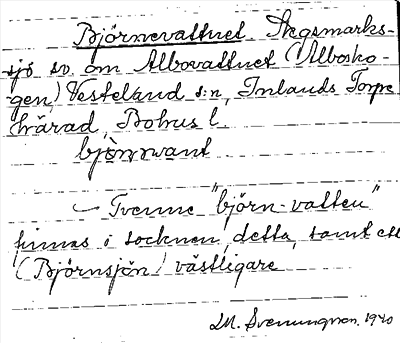 Björnevattnet Skogsmarks-
sjö sv. om Albovattnet (Albosko-
gen) Vesteland s:n, Inlands Torpe
härad, Bohus l.
björnvant
Tvenne "björn-vatten"
finnas i socknen, detta, samt ett
(Björnsjön) västligare
Svenungson. 1940